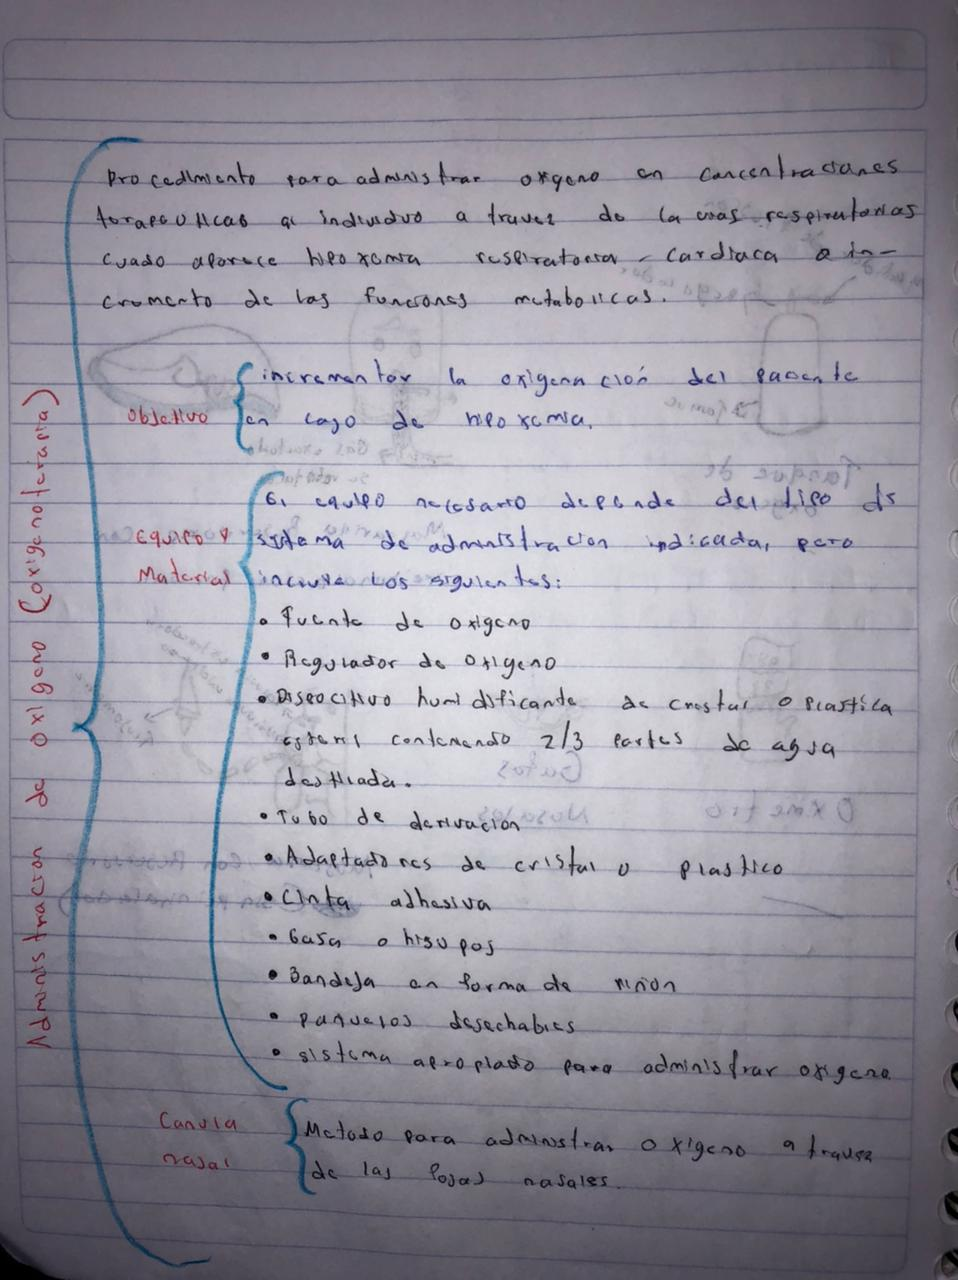 Administracion de oxigeno (oxigenoterapia)
Procedimiento para administrar oxgeno en concentraciones
terapeuticas al individuo a travez de la vias respiratorias
cuado aparece hipoxemia respiratoria - cardiaca o in-
cremento de las funciones metabolicas.
Objetivo
incrementar la oxigenación del paciente
en caso de hipoxemia.
Equipo y
Material
El equipo necesario depende del tipo de
sistema de administracion indicada, pero
incluye los siguientes:
• Fuente de oxigeno
• Regulador de oxigeno
• Dispocitivo humidificante de cristal o plastica
esteril conteniendo 2/3 partes de agua
destilada.
• Tubo de derivacion
• Adaptadores de cristal o plastico
• Cinta adhesiva
• Gasa o hisopos
• Bandeja en forma de riñon
• pañuelos desechables
• sistema apropiado para administrar oxigeno
Canula
nasal
Metodo para administrar oxigeno a travez
de las fosas nasales.